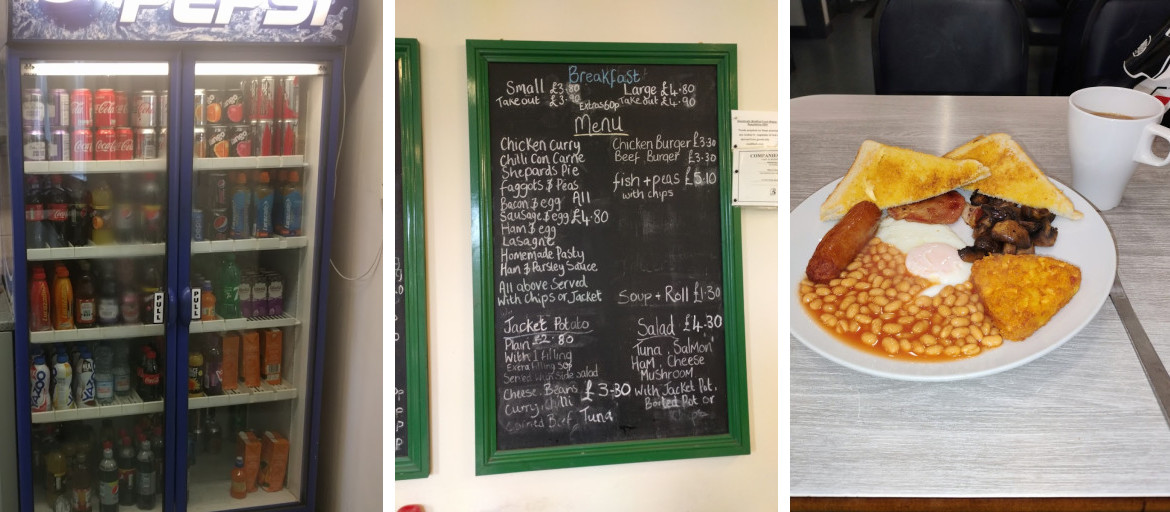 PEPSI
PULL
PULL
Breakfast
Small £3.80 Large £4.80
Take out £3.90 Take out £4.90
Extras 60p
Menu
Chicken Curry
Chilli Con Carne
Shepards Pie
Faggots & Peas
Bacon & egg All
Sausage & egg £4.80
Ham & egg
Lasagne
Homemade Pasty
Ham & Parsley Sauce
All above Served
With Chips or Jacket
Chicken Burger £3.30
Beef Burger £3.30
fish + peas £5.10
with chips
Soup + Roll £1.30
Jacket Potato
Plain £2.80
With 1 filling
Extra filling 50p
Served With Side salad
Cheese, Beans £3.30
Curry, Chilli
Corned Beef, Tuna
Salad £4.30
Tuna, Salmon
Ham, Cheese
Mushroom
With Jacket Pot,
Boiled Pot or